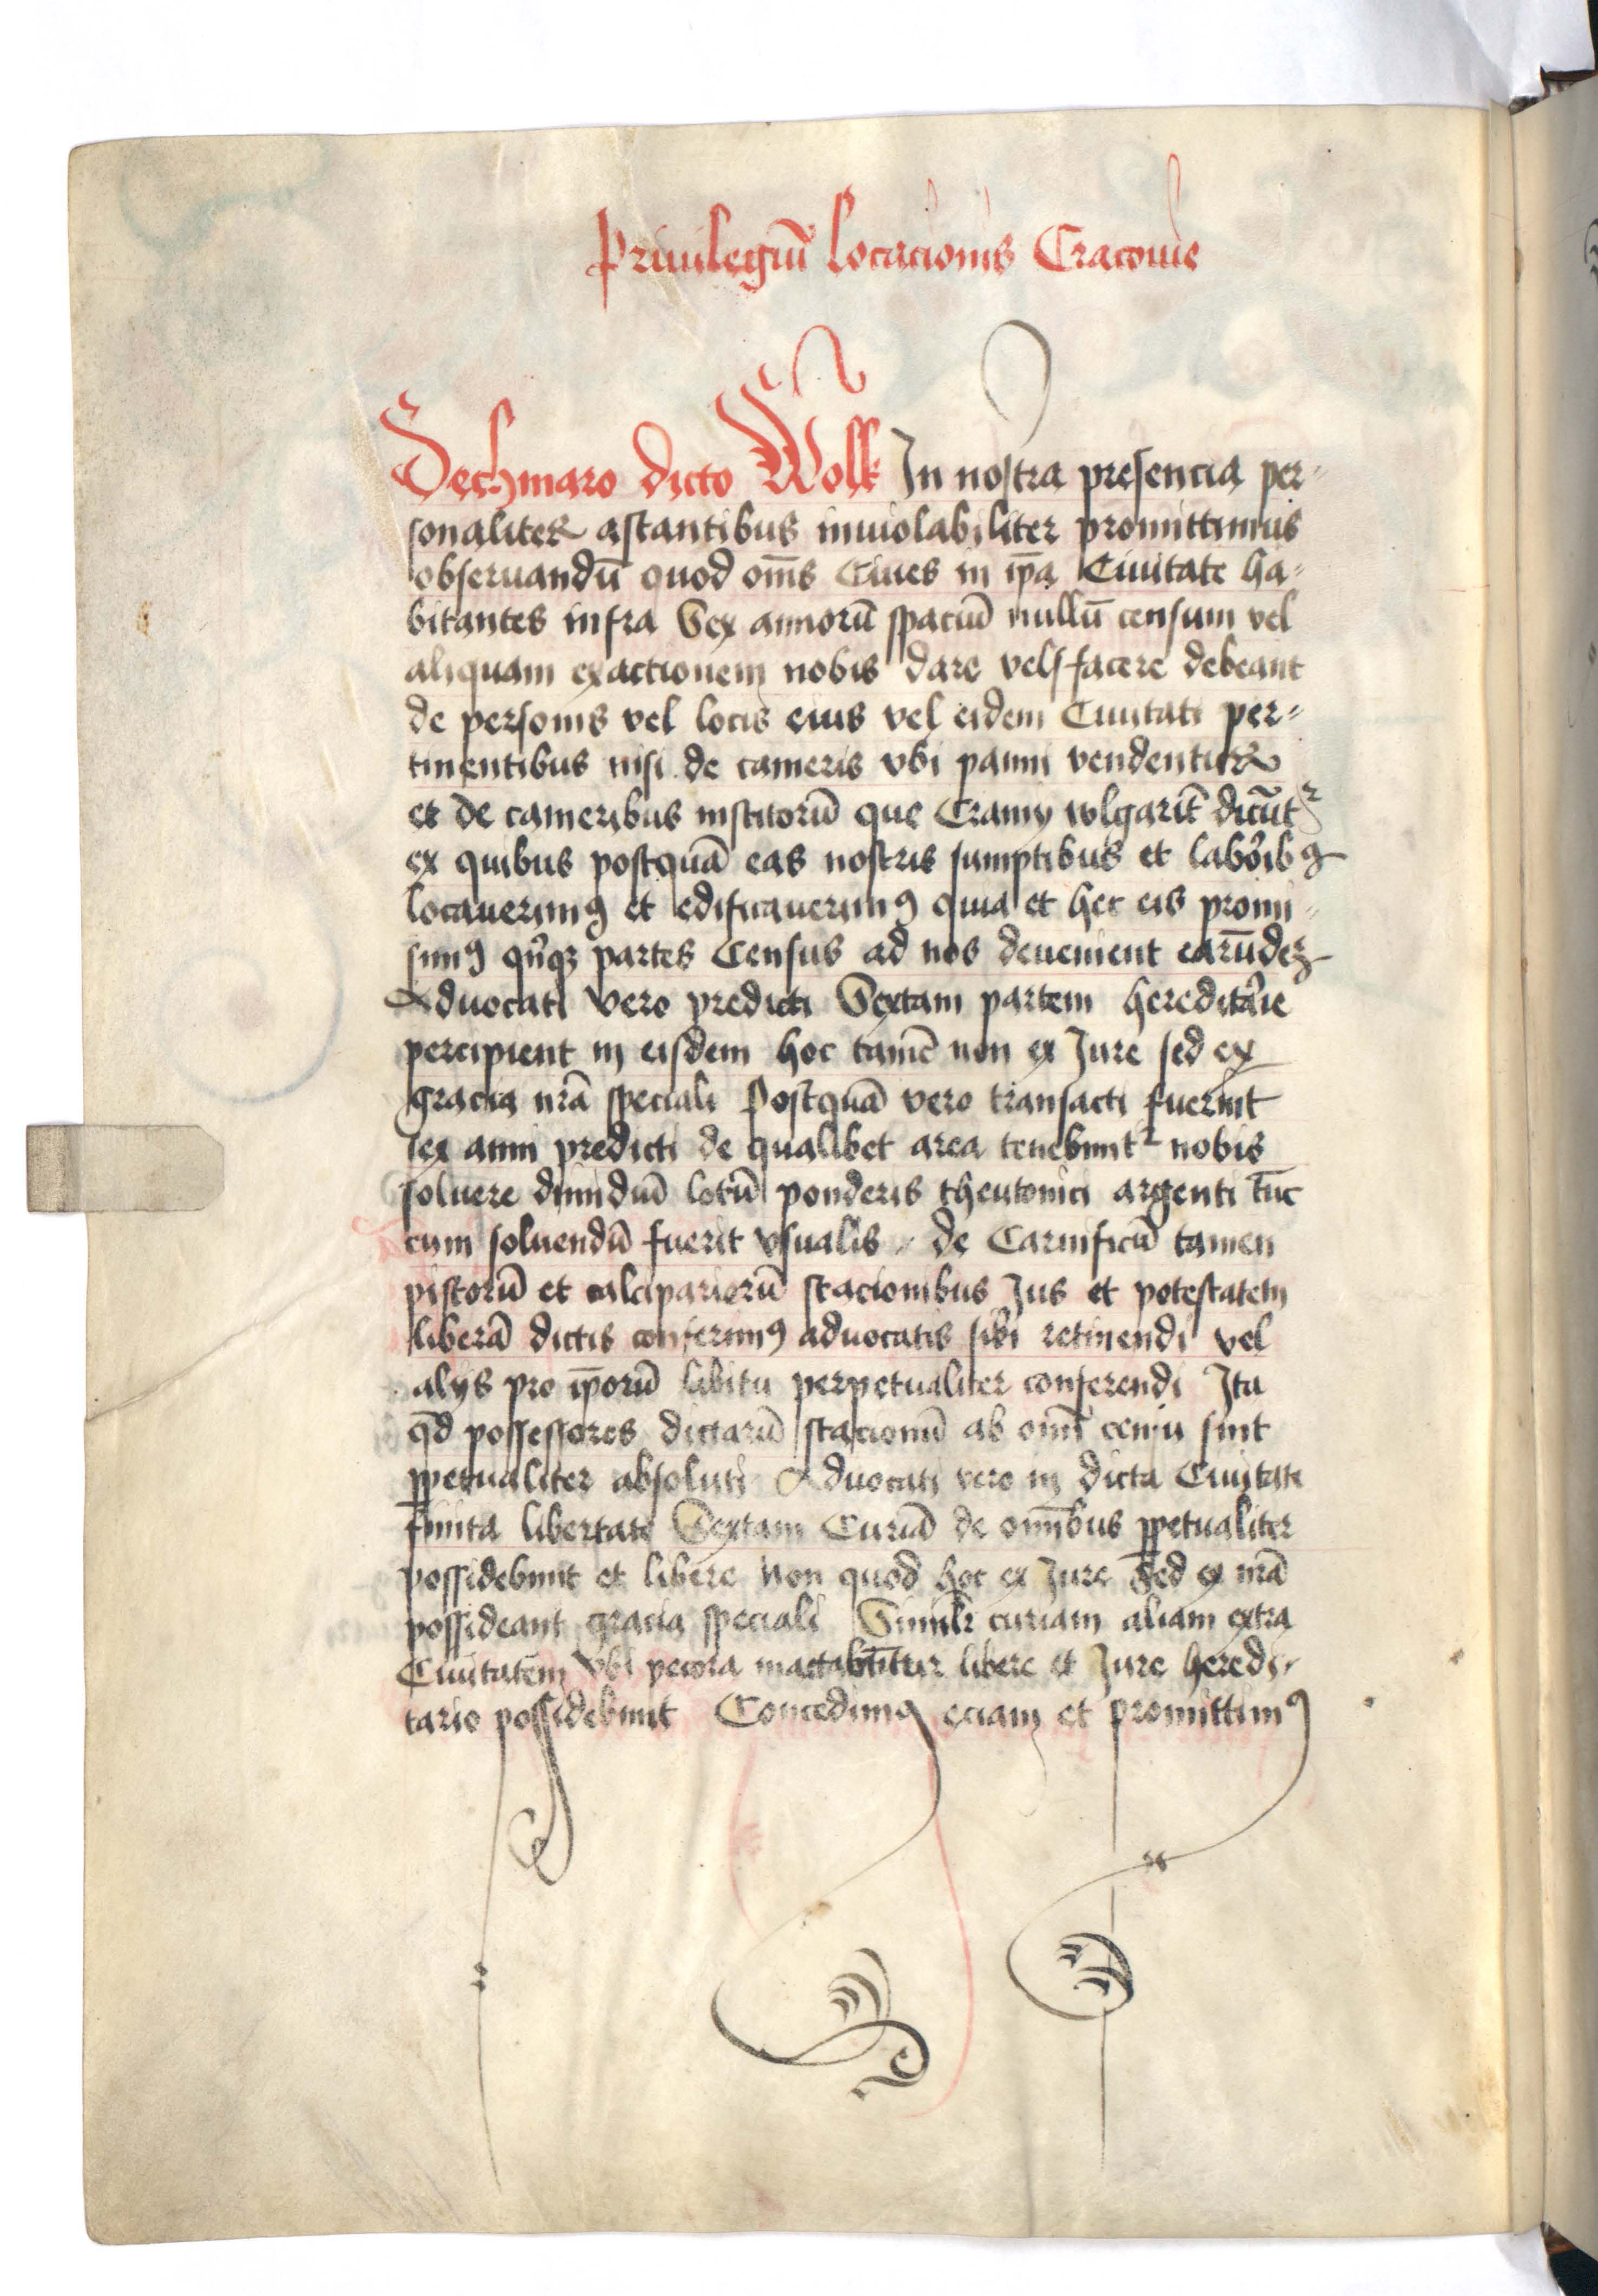 Priuilegiū locacionis Cracouie
Dechmaro dicto Wolk In nostra presencia per=
sonaliter astantibus inuiolabiliter promittimus
obseruandū quod om̄s Ciues in ip̄a Ciuitate ha=
bitantes infra Sex annorū spaciū nullū censum vel
aliquam exactionem nobis dare vel facere debeant
de personis vel locis eius vel eidem Ciuitati per=
tinentibus nisi de cameris vbi panni vendentur
et de cameribus institorū que Cramy wlgarit̄ dicūtᷣ
ex quibus postquā eas nostris sumptibus et laboribꝯ
locauerimꝯ et edificauerimꝯ quia et hec eis promi=
simꝯ qͥnqꝫ partes Census ad nos deuenient earūdeꝫ
Aduocati vero predicti Sextam partem hereditarie
percipient in eisdem hoc tamē non ex Jure sed ex
gracia nrā speciali Postquā vero transacti fuerint
sex anni predicti de qualibet area tenebuntᷣ nobis
soluere dimidiū lotū ponderis theutonici argenti tūc
cum soluendū fuerit vsualis de Carnificū tamen
pistorū et calcipariorū stacionibus Jus et potestatem
liberā dictis conferimꝯ aduocatis sibi retinendi vel
alijs pro ip̄orū libitu perpetualiter conferendi Ita
qd̄ possessores dictarū stacionū ab omī censu sint
ꝑpetualiter absoluti Aduocati vero in dicta Ciuitate
finita libertate Sextam Curiā de omībus ꝑpetualiter
possidebunt et libere non quod hoc ex Jure Sed ex nrā
possideant gracia speciali Similr̄ curiam aliam extra
Ciuitatem vbi pecora mactabūtur libere et Jure heredi=
tario possidebunt Concedimꝯ eciam et promittimꝯ